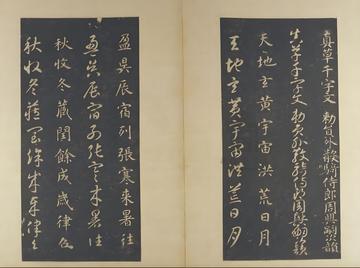 真草千字文 勑員外散騎侍郎周興嗣次韻
真草千字文 勑員外散騎侍郎周興嗣次韻
天地玄黃宇宙洪荒日月
天地玄黃宇宙洪荒日月
盈昃辰宿列張寒來暑往
盈昃辰宿列張寒來暑往
秋收冬藏閏餘成歲律召
秋收冬藏閏餘成歲律召